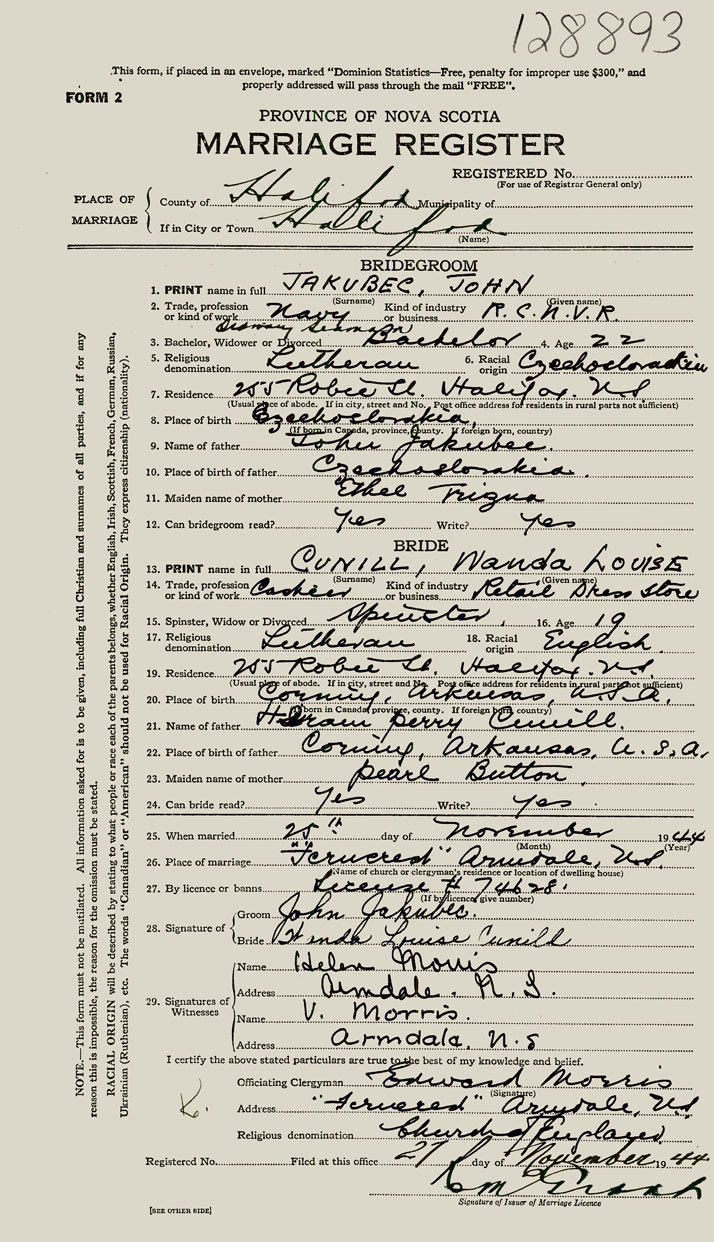 128893
.This form, if placed in an envelope, marked “Dominion Statistics—Free, penalty for improper use $300,” and
properly addressed will pass through the mail “FREE”.
FORM 2
PROVINCE OF NOVA SCOTIA
MARRIAGE REGISTER
REGISTERED No.
(For use of Registrar General only)
PLACE OF MARRIAGE
County of Halifax Municipality of
If in City or Town Halifax
(Name)
BRIDEGROOM
1. PRINT name in full JAKUBEC, JOHN
(Surname) (Given name)
2. Trade, profession or kind of work Navy Kind of industry or business R.C.N.V.R.
Ordinary Seaman
3. Bachelor, Widower or Divorced Bachelor 4. Age 22
5. Religious denomination Lutheran 6. Racial origin Czechoslovakian
7. Residence 255 Robie St. Halifax. N.S
(Usual place of abode. If in city, street and No. Post office address for residents in rural parts not sufficient)
8. Place of birth Czechoslovakia,
(If born in Canada, province, county. If foreign born, country)
9. Name of father John Jakubec.
10. Place of birth of father Czechoslovakia.
11. Maiden name of mother Ethel Trigna
12. Can bridegroom read? Yes Write? Yes
BRIDE
13. PRINT name in full CUNILL, Wanda LOUISE
(Surname) (Given name)
14. Trade, profession or kind of work Cashier Kind of industry or business Retail Dress Store
15. Spinster, Widow or Divorced Spinster, 16. Age 19
17. Religious denomination Lutheran 18. Racial origin English.
19. Residence 255 Robie St. Halifax. N.S.
(Usual place of abode. If in city, street and No. Post office address for residents in rural parts not sufficient)
20. Place of birth Corning, Arkansas, U.S.A,
(If born in Canada, province, county. If foreign born, country)
21. Name of father Hiram Perry Cunill.
22. Place of birth of father Corning, Arkansas, U.S.A,
23. Maiden name of mother Pearl Button,
24. Can bride read? Yes Write? Yes
25. When married 25th day of November 1944
(Month) (Year)
26. Place of marriage "Ferncrest" Armdale, N.S.
(Name of church or clergyman's residence or location of dwelling house)
27. By licence or banns License # 74628.
(If by licence give number)
28. Signature of
Groom John Jakubec.
Bride Wanda Louise Cunill
29. Signatures of Witnesses
Name Helen Morris
Address Armdale. N.S.
Name V. Morris.
Address Armdale, N.S
I certify the above stated particulars are true to the best of my knowledge and belief.
Officiating Clergyman Edward Morris
(Signature)
K. Address "Ferncrest" Armdale, N.S
Religious denomination Church of England
Registered No. Filed at this office 27 day of November 1944
Grant
Signature of Issuer of Marriage Licence
[SEE OTHER SIDE]
NOTE.—This form must not be mutilated. All information asked for is to be given, including full Christian and surnames of all parties, and if for any
reason this is impossible, the reason for the omission must be stated.
RACIAL ORIGIN will be described by stating to what people or race each of the parents belongs, whether English, Irish, Scottish, French, German, Russian,
Ukrainian (Ruthenian), etc. The words “Canadian” or “American” should not be used for Racial Origin. They express citizenship (nationality).